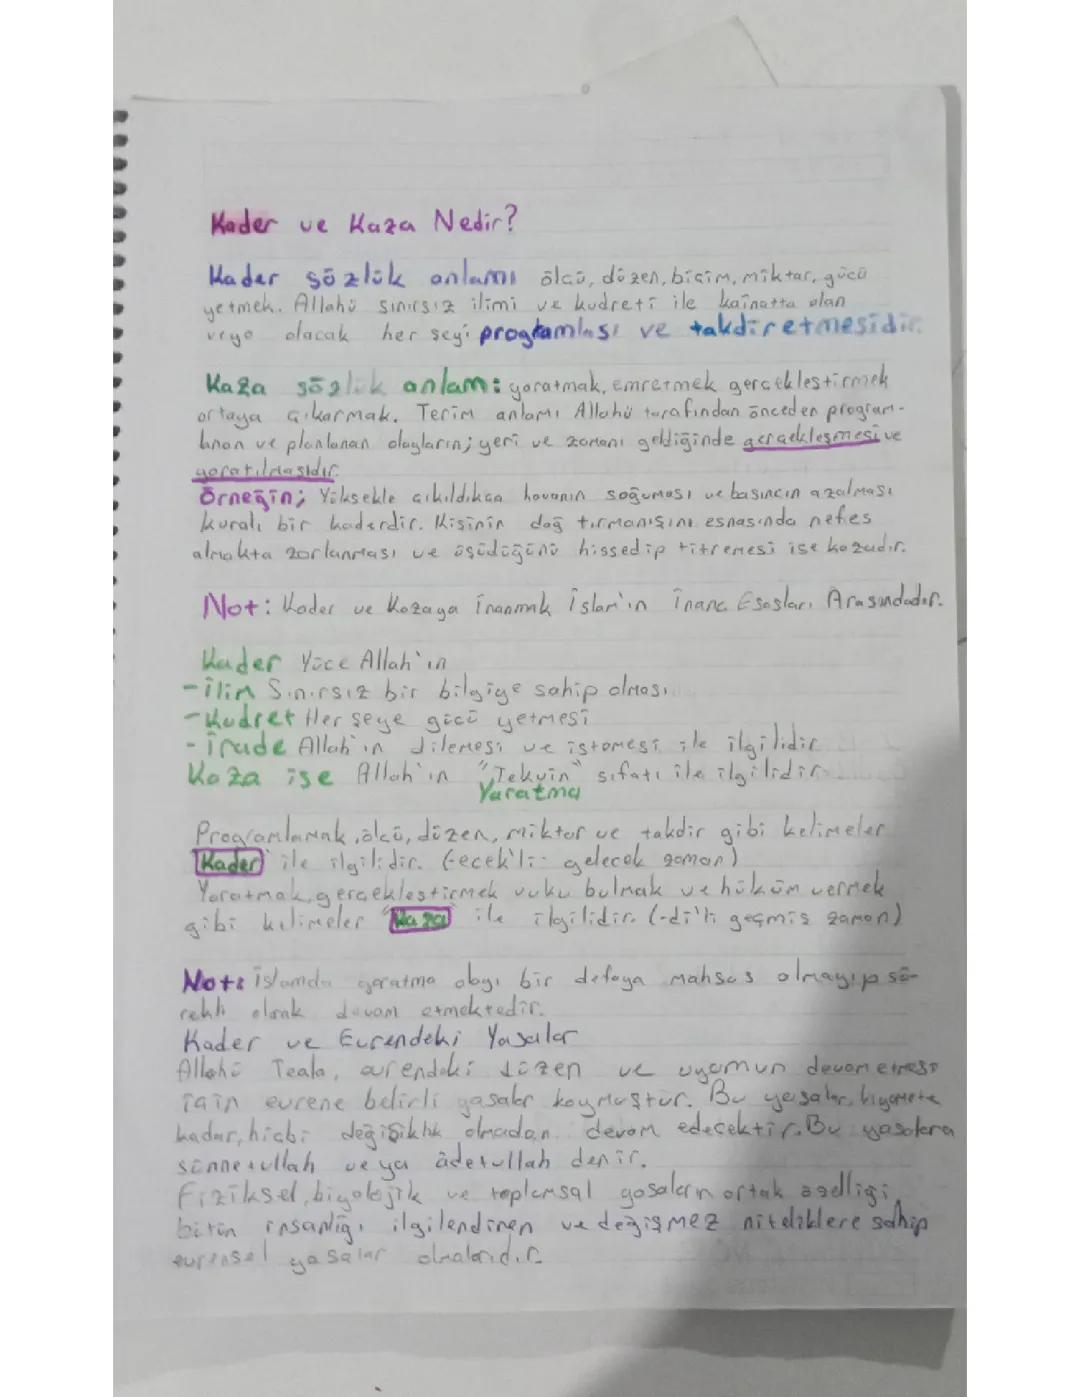 Kader ve Kaza Nedir?
Kader sözlük anlamı ölçü, düzen, biçim, miktar, gücü
yetmek. Allahü sınırsız ilimi ve kudreti ile kainatta olan
veya olacak her şeyi programlası ve takdir etmesidir.
Kaza sözlük anlam: yaratmak, emretmek gerçekleştirmek
ortaya çıkarmak. Terim anlamı Allahü tarafından önceden program-
lanan ve planlanan olayların; yeri ve zamanı geldiğinde gerçekleşmesi ve
yaratılmasıdır.
Örneğin; Yüksekle çıkıldıkça havanın soğuması ve basıncın azalması
kuralı bir kaderdir. Kişinin dağ tırmanışını esnasında nefes
almakta zorlanması ve üşüdüğünü hissedip titremesi ise kazadır.
Not: Kader ve Kazaya İnanmak İslam'ın İnanç Esasları Arasındadır.
Kader Yüce Allah'ın
-İlim Sınırsız bir bilgiye sahip olması
-Kudret Her şeye gücü yetmesi
-İrade Allah'ın dilemesi ve istemesi ile ilgilidir
Kaza ise Allah'ın "Tekvin" sıfatı ile ilgilidir.
Yaratma
Programlamak, ölçü, düzen, miktar ve takdir gibi kelimeler
Kader ile ilgilidir. (-ecek'li- gelecek zaman)
Yaratmak, gerçekleştirmek vuku bulmak ve hüküm vermek
gibi kelimeler "Kaza" ile ilgilidir. (-di'li geçmiş zaman)
Not: İslamda yaratma olayı bir defaya mahsus olmayıp sü-
rekli olarak devam etmektedir.
Kader ve Evrendeki Yasalar
Allahü Teala, evrendeki düzen ve uyumun devam etmesi
için evrene belirli yasalar koymuştur. Bu yasalar, kıyamete
kadar, hiçbi değişiklik olmadan devam edecektir. Bu yasalara
sünnetullah veya âdetullah denir.
Fiziksel, biyolojik ve toplumsal yasaların ortak özelliği
bütün insanlığı ilgilendiren ve değişmez niteliklere sahip
evrensel yasalar olmalarıdır.